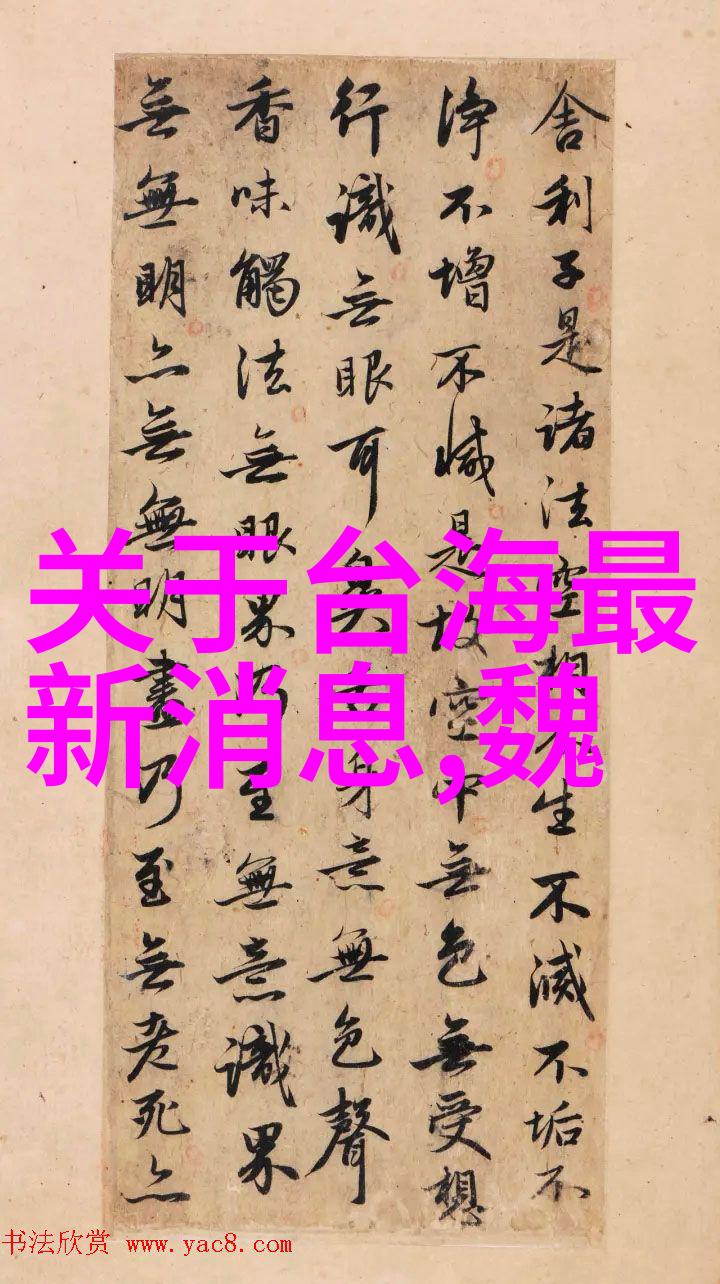 关于台海最
新消息,魏
舍利子是諸法空相不生不滅不垢不
淨不增不減是故空中無色無受想
行識無眼耳鼻身意無色聲
香味觸法無眼界乃至無意識界
無無明亦無無明盡乃至無老死亦
书法欣赏 www.yac8.com